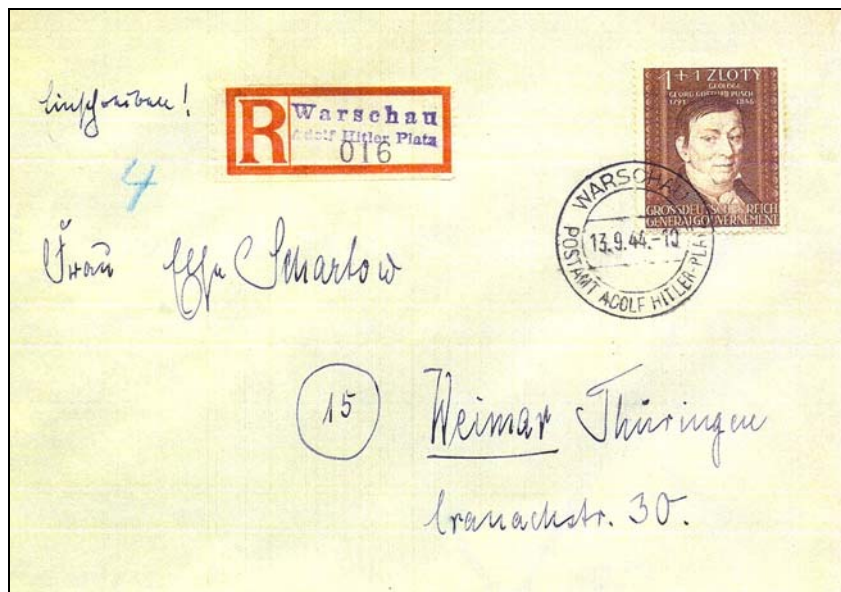 Einschreiben!
R
Warschau
Adolf Hitler Platz
016
1+1 ZLOTY
GEOLOGE
GEORG GOTTLIEB PUSCH
1791 1846
GROSSDEUTSCHES REICH
GENERALGOUVERNEMENT
WARSCHAU
13.9.44.-10
POSTAMT ADOLF HITLER-PLATZ
4
Frau Scharlow
15
Weimar Thüringen
Cranachstr. 30.